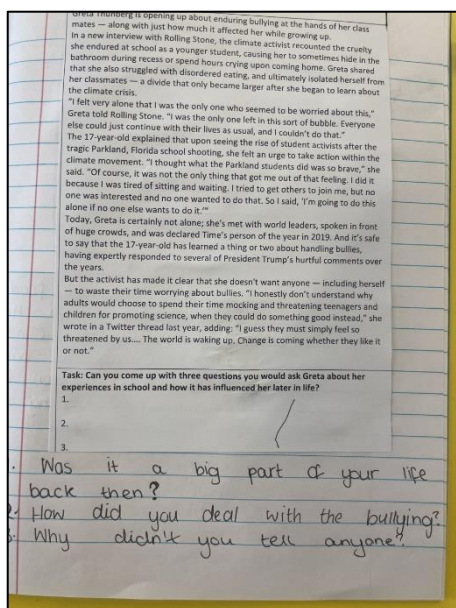 Greta Thunberg is opening up about enduring bullying at the hands of her class
mates — along with just how much it affected her while growing up.
In a new interview with Rolling Stone, the climate activist recounted the cruelty
she endured at school as a younger student, causing her to sometimes hide in the
bathroom during recess or spend hours crying upon coming home. Greta shared
that she also struggled with disordered eating, and ultimately isolated herself from
her classmates — a divide that only became larger after she began to learn about
the climate crisis.
"I felt very alone that I was the only one who seemed to be worried about this,"
Greta told Rolling Stone. "I was the only one left in this sort of bubble. Everyone
else could just continue with their lives as usual, and I couldn't do that."
The 17-year-old explained that upon seeing the rise of student activists after the
tragic Parkland, Florida school shooting, she felt an urge to take action within the
climate movement. "I thought what the Parkland students did was so brave," she
said. "Of course, it was not the only thing that got me out of that feeling. I did it
because I was tired of sitting and waiting. I tried to get others to join me, but no
one was interested and no one wanted to do that. So I said, 'I'm going to do this
alone if no one else wants to do it.'"
Today, Greta is certainly not alone; she's met with world leaders, spoken in front
of huge crowds, and was declared Time's person of the year in 2019. And it's safe
to say that the 17-year-old has learned a thing or two about handling bullies,
having expertly responded to several of President Trump's hurtful comments over
the years.
But the activist has made it clear that she doesn't want anyone — including herself
— to waste their time worrying about bullies. "I honestly don't understand why
adults would choose to spend their time mocking and threatening teenagers and
children for promoting science, when they could do something good instead," she
wrote in a Twitter thread last year, adding: "I guess they must simply feel so
threatened by us.... The world is waking up. Change is coming whether they like it
or not."
Task: Can you come up with three questions you would ask Greta about her
experiences in school and how it has influenced her later in life?
1.
2.
3.
. Was it a big part of your life
back then?
2. How did you deal with the bullying?
3. Why didn't you tell anyone?